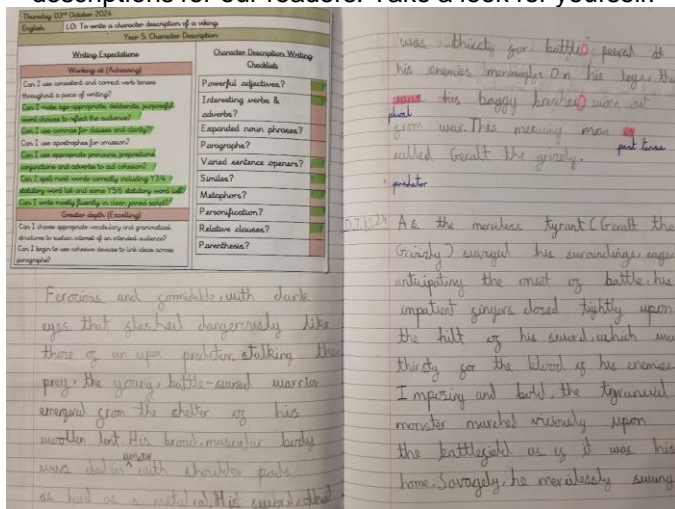 descriptions for our readers. Take a look for yourself.
Thursday 03rd October 2024
English LO: To write a character description of a viking.
Year 5: Character Description
Writing Expectations
Working at (Achieving)
Can I use consistent and correct verb tenses
throughout a piece of writing?
Can I make age-appropriate, deliberate, purposeful
word choices to reflect the audience?
Can I use commas for clauses and clarity?
Can I use apostrophes for omission?
Can I use appropriate pronouns, prepositions,
conjunctions and adverbs to aid cohesion?
Can I spell most words correctly including Y3/4
statutory word list and some Y5/6 statutory word list?
Can I write mostly fluently in clean joined script?
Greater depth (Excelling)
Can I choose appropriate vocabulary and grammatical
structures to sustain interest of an intended audience?
Can I begin to use cohesive devices to link ideas across
paragraphs?
Character Description Writing
Checklist
Powerful adjectives?
Interesting verbs &
adverbs?
Expanded noun phrases?
Paragraphs?
Varied sentence openers?
Similes?
Metaphors?
Personification?
Relative clauses?
Parenthesis?
Ferocious and formidable, with dark
eyes that flashed dangerously like
those of an apex predator, stalking their
prey, the young, battle-scared warrior
emerged from the shelter of his
woollen tent. His broad, muscular body
was clad in armour with shoulder pads
as hard as a metal rod. His sword, that
was thirsty for battle, peered at
his enemies menacingly. On his legs, the
his baggy breeches, worn out
plural
from war. This menacing man
past tense
called Geralt the grizzly.
predator
07.10.24 As the merciless tyrant (Geralt the
Grizzly) surveyed his surroundings, eager
anticipating the onset of battle, his
impatient fingers closed tightly upon
the hilt of his sword, which was
thirsty for the blood of his enemies.
Imposing and bold, the tyrannical
monster marched viciously upon
the battlefield as if it was his
home. Savagely, he mercilessly swung